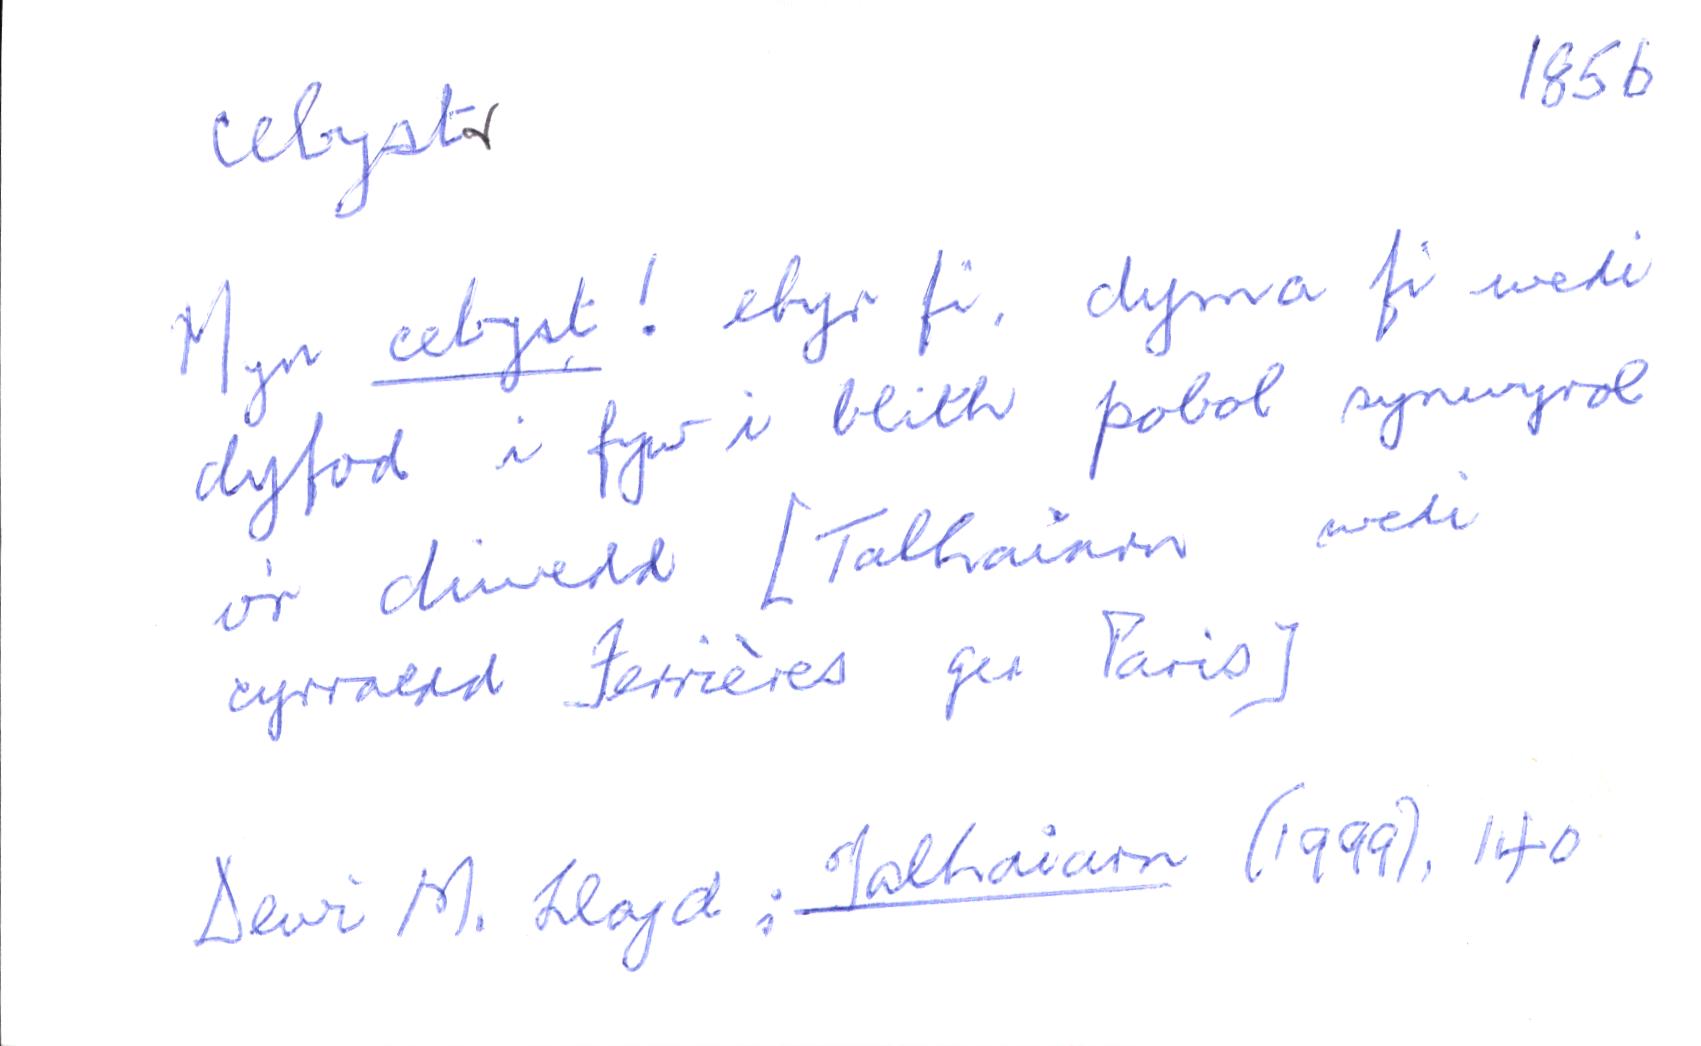 1856
cebystr
Myn cebyst! ebyr fi, dyma fi wedi
dyfod i fyw i blith pobol synwyrol
o'r diwedd [Talhaiarn wedi
cyrraedd Ferrières ger Paris]
Dewi M. Lloyd; Talhaiarn (1999), 140